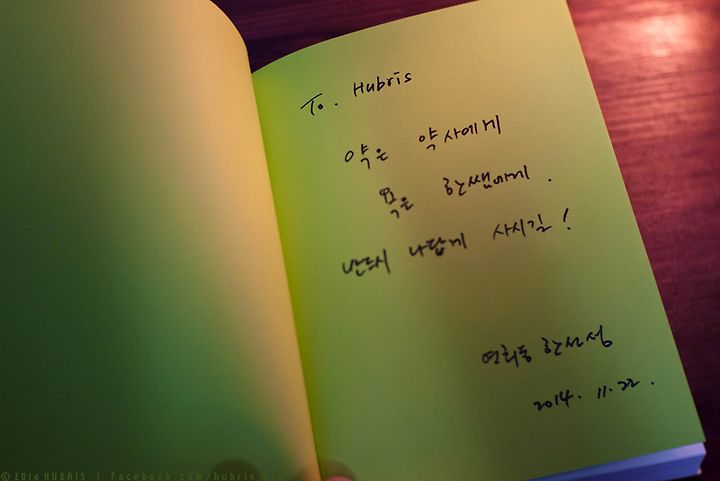 To. Hubris
약은 약사에게
욕은 한쌤에게.
반드시 나답게 사시길!
연희동 한선생
2014. 11. 22.
© 2014 HUBRIS | facebook.com/hubris